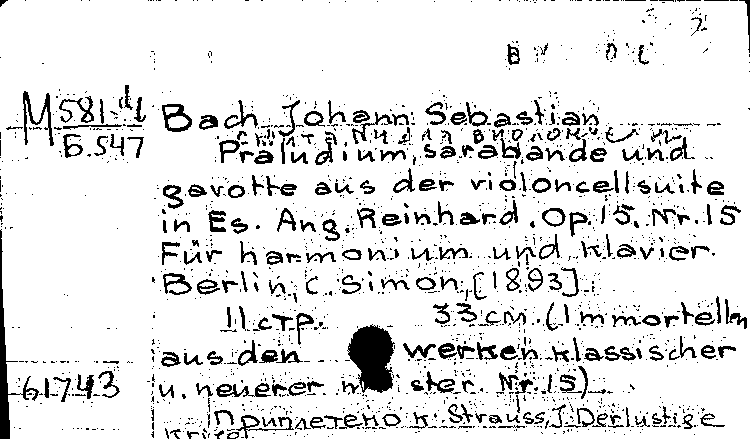 M 581-d1
Б.547
Bach Johann Sebastian
Präludium, sarabande und
gavotte aus der violoncellsuite
in Es. Ang. Reinhard. Op.15. Nr.15
Für harmonium und klavier.
Berlin, C. Simon, [1893].
11 стр. 33 см. (Immortellen
aus den werken klassischer
61743
u. neuerer ster. Nr.15)
Приплетено к: Strauss, J. Der lustige